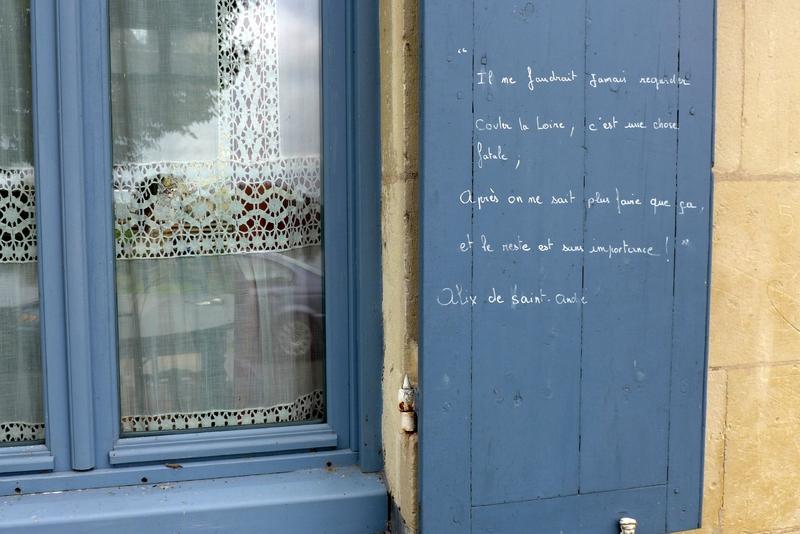 “
Il ne faudrait jamais regarder
couler la Loire, c'est une chose
fatale ;
Après on ne sait plus faire que ça,
et le reste est sans importance ! "
Alix de Saint-André